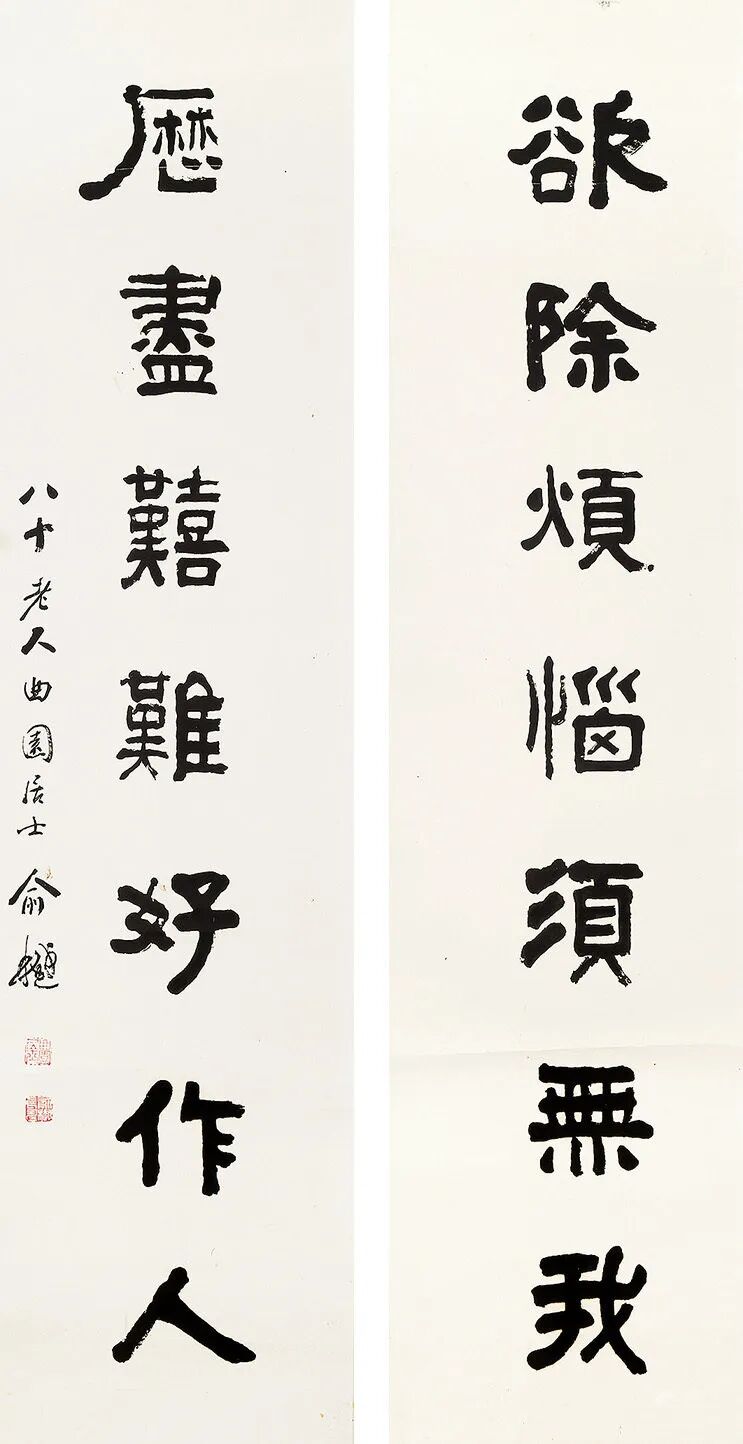 欲除煩惱須無我
歷盡囏難好作人
八十老人曲園居士俞樾